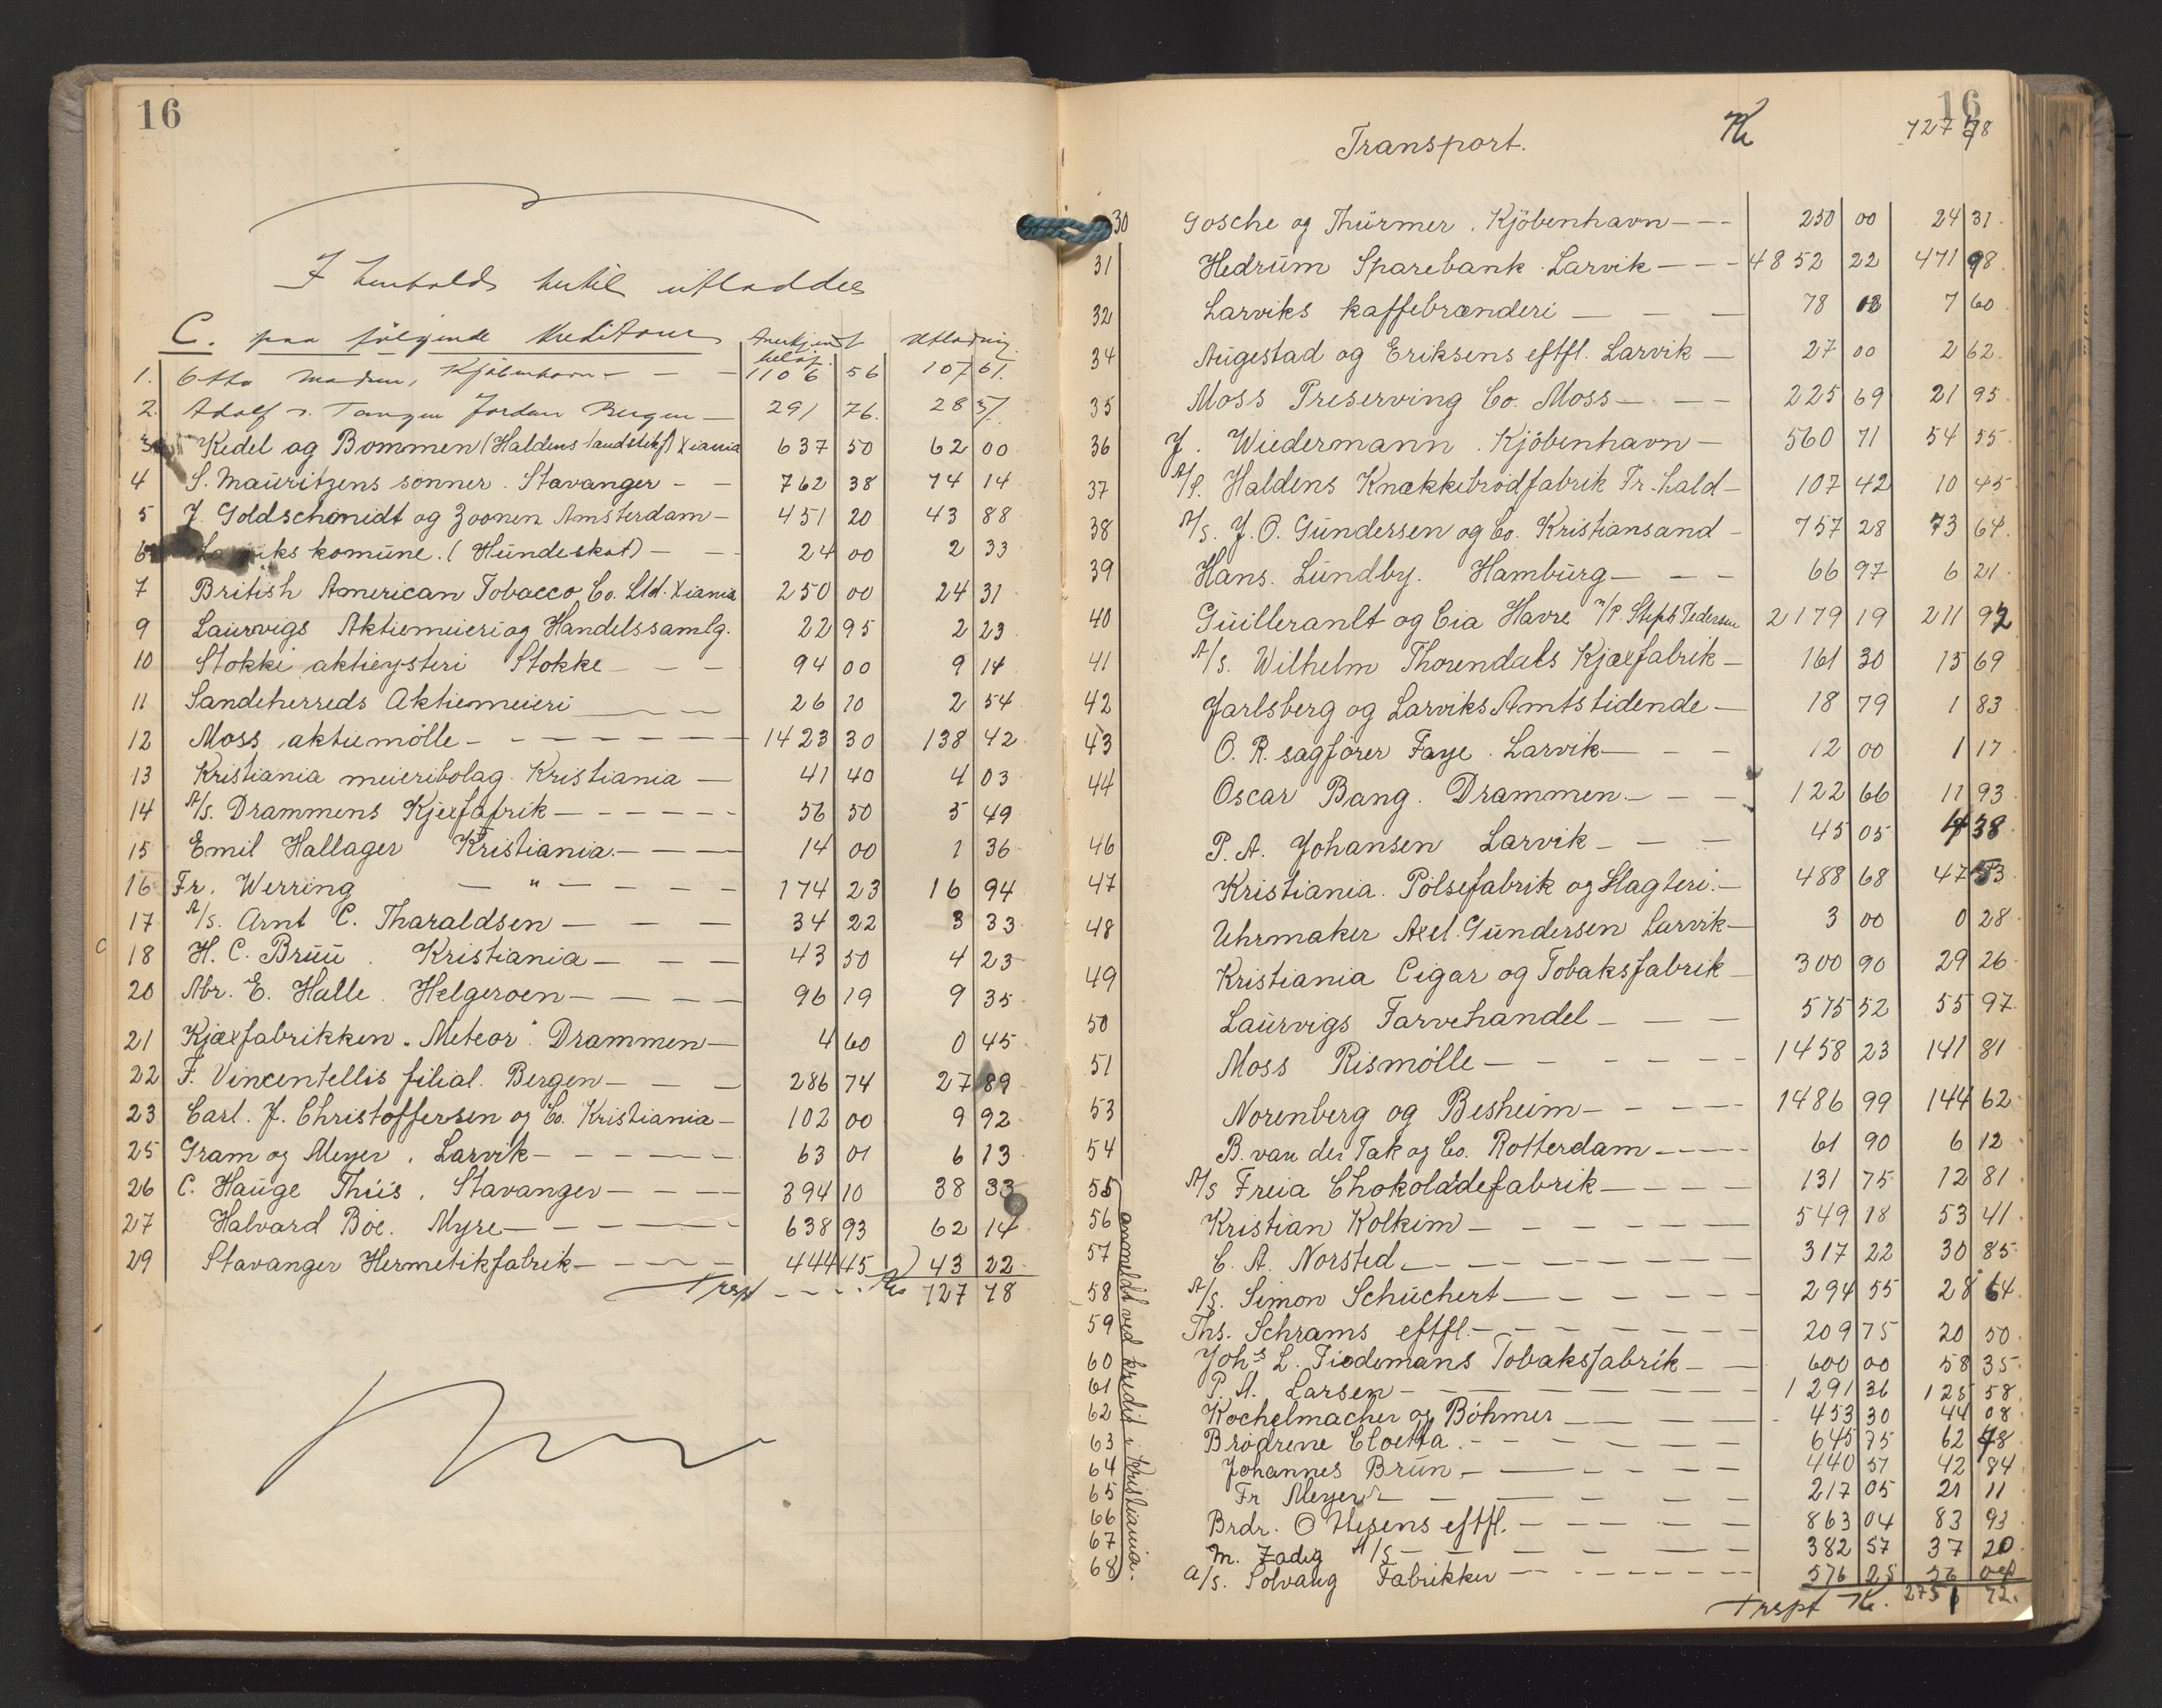 16
I henhold hertil utloddes
C. paa følgende kreditorer Anerkjendt beløp. Utlodning
1. Otto Madsen, Kjøbenhavn - - - 1106 56 107 61.
2. Adolf v. Tangen Jordan Bergen - 291 76. 28 37.
3 Kedel og Bommen (Haldens landstekf) Xiania 637 50 62 00
4 S. Mauritzens sønner. Stavanger - - 762 38 74 14
5 J. Goldschmidt og Zoonen Amsterdam - 451 20 43 88
6 Larviks komune. (Hundeskat) - - 24 00 2 33
7 British American Tobacco Co. Ltd. Xiania 250 00 24 31
9 Laurvigs Aktiemeieri og Handelssamlg. 22 95 2 23
10 Stokke aktieysteri Stokke - - - 94 00 9 14
11 Sandeherreds Aktiemeieri - - 26 10 2 54
12 Moss aktiemølle - - - - - - - 1423 30 138 42
13 Kristiania meieribolag. Kristiania - 41 40 4 03
14 A/S. Drammens Kjexfabrik - - - - - - 56 50 5 49
15 Emil Hallager Kristiania. - - - 14 00 1 36
16 Fr. Werring - " - - - - 174 23 16 94
17 A/S. Arnt C. Tharaldsen - - - 34 22 3 33
18 H. C. Bruu. Kristiania - - - 43 50 4 23
20 Abr. E. Halle. Helgeroen - - - - 96 19 9 35
21 Kjæxfabrikken "Meteor". Drammen - 4 60 0 45
22 F. Vincentellis filial. Bergen - - - 286 74 27 89
23 Carl. J. Christoffersen og Co. Kristiania - 102 00 9 92
25 Gram og Meyer, Larvik - - - - - 63 01 6 13
26 C. Hauge Thiis, Stavanger - - - - 394 10 38 33
27 Halvard Bøe. Myre - - - - - 638 93 62 14
29 Stavanger Hermetikfabrik - - - - 444 45 43 22
Trspt - - - - Kr 727 78
16
Transport. Kr 727 78
30 Gosche og Thürmer. Kjøbenhavn - - - 250 00 24 31
31 Hedrum Sparebank Larvik - - - 4852 22 471 98
32 Larviks kaffebrænderi - - - 78 08 7 60
34 Augestad og Eriksens eftfl. Larvik - 27 00 2 62
35 Moss Preserving Co. Moss - - - 225 69 21 95
36 J. Wiedermann. Kjøbenhavn - 560 71 54 55
37 A/S. Haldens Knækkebrødfabrik Fr.hald - 107 42 10 45
38 A/S. J. O. Gundersen og Co. Kristiansand - 757 28 73 64
39 Hans. Lundby. Hamburg - - - 66 97 6 21
40 Guilleranlt og Cia Havre Steph Pedersen 2179 19 211 92
41 A/S. Wilhelm Thorendals Kjæxfabrik - 161 30 15 69
42 Jarlsberg og Larviks Amtstidende - 18 79 1 83
43 O. R. sagfører Faye. Larvik - - - 12 00 1 17
44 Oscar Bang. Drammen. - - - 122 66 11 93
46 P. A. Johansen Larvik - - - 45 05 4 38
47 Kristiania. Pølsefabrik og Slagteri. - 488 68 47 53
48 Uhrmaker Axel. Gundersen Larvik - 3 00 0 28
49 Kristiania Cigar og Tobaksfabrik - 300 90 29 26
50 Laurvigs Farvehandel - - - 575 52 55 97
51 Moss Rismølle - - - - - - 1458 23 141 81
53 Norenberg og Besheim - - - - 1486 99 144 62
54 B. van der Tak og Co. Rotterdam - - - - 61 90 6 12
55 A/S Freia Chokoladefabrik - - - - 131 75 12 81
56 Kristian Kolkim - - - - - - 549 18 53 41
57 C. A. Norsted. - - - - - - 317 22 30 85
58 A/S. Simon Schüchert - - - - - 294 55 28 64
59 Ths. Schrams eftfl. - - - - - - 209 75 20 50
60 Johs L. Tiedemans Tobaksfabrik - - 600 00 58 35
61 P. A. Larsen - - - - - - 1291 36 125 58
62 Kochelmacher og Böhmer - - - - 453 30 44 08
63 Brødrene Cloetta. - - - - - - 645 75 62 78
64 Johannes Brun. - - - - - 440 57 42 84
65 Fr Meyer - - - - - 217 05 21 11
66 Brdr. Ottesens eftfl. - - - - - 863 04 83 93
67 M. Zadig A/S - - - - - - 382 57 37 20
68 A/S. Solvang Fabrikker - - - - - - 576 25 56 04
anmeldt ved kredit i Kristiania.
Trspt Kr. 2751 72.